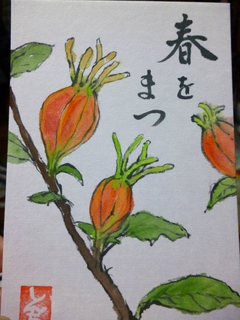 春を
まつ